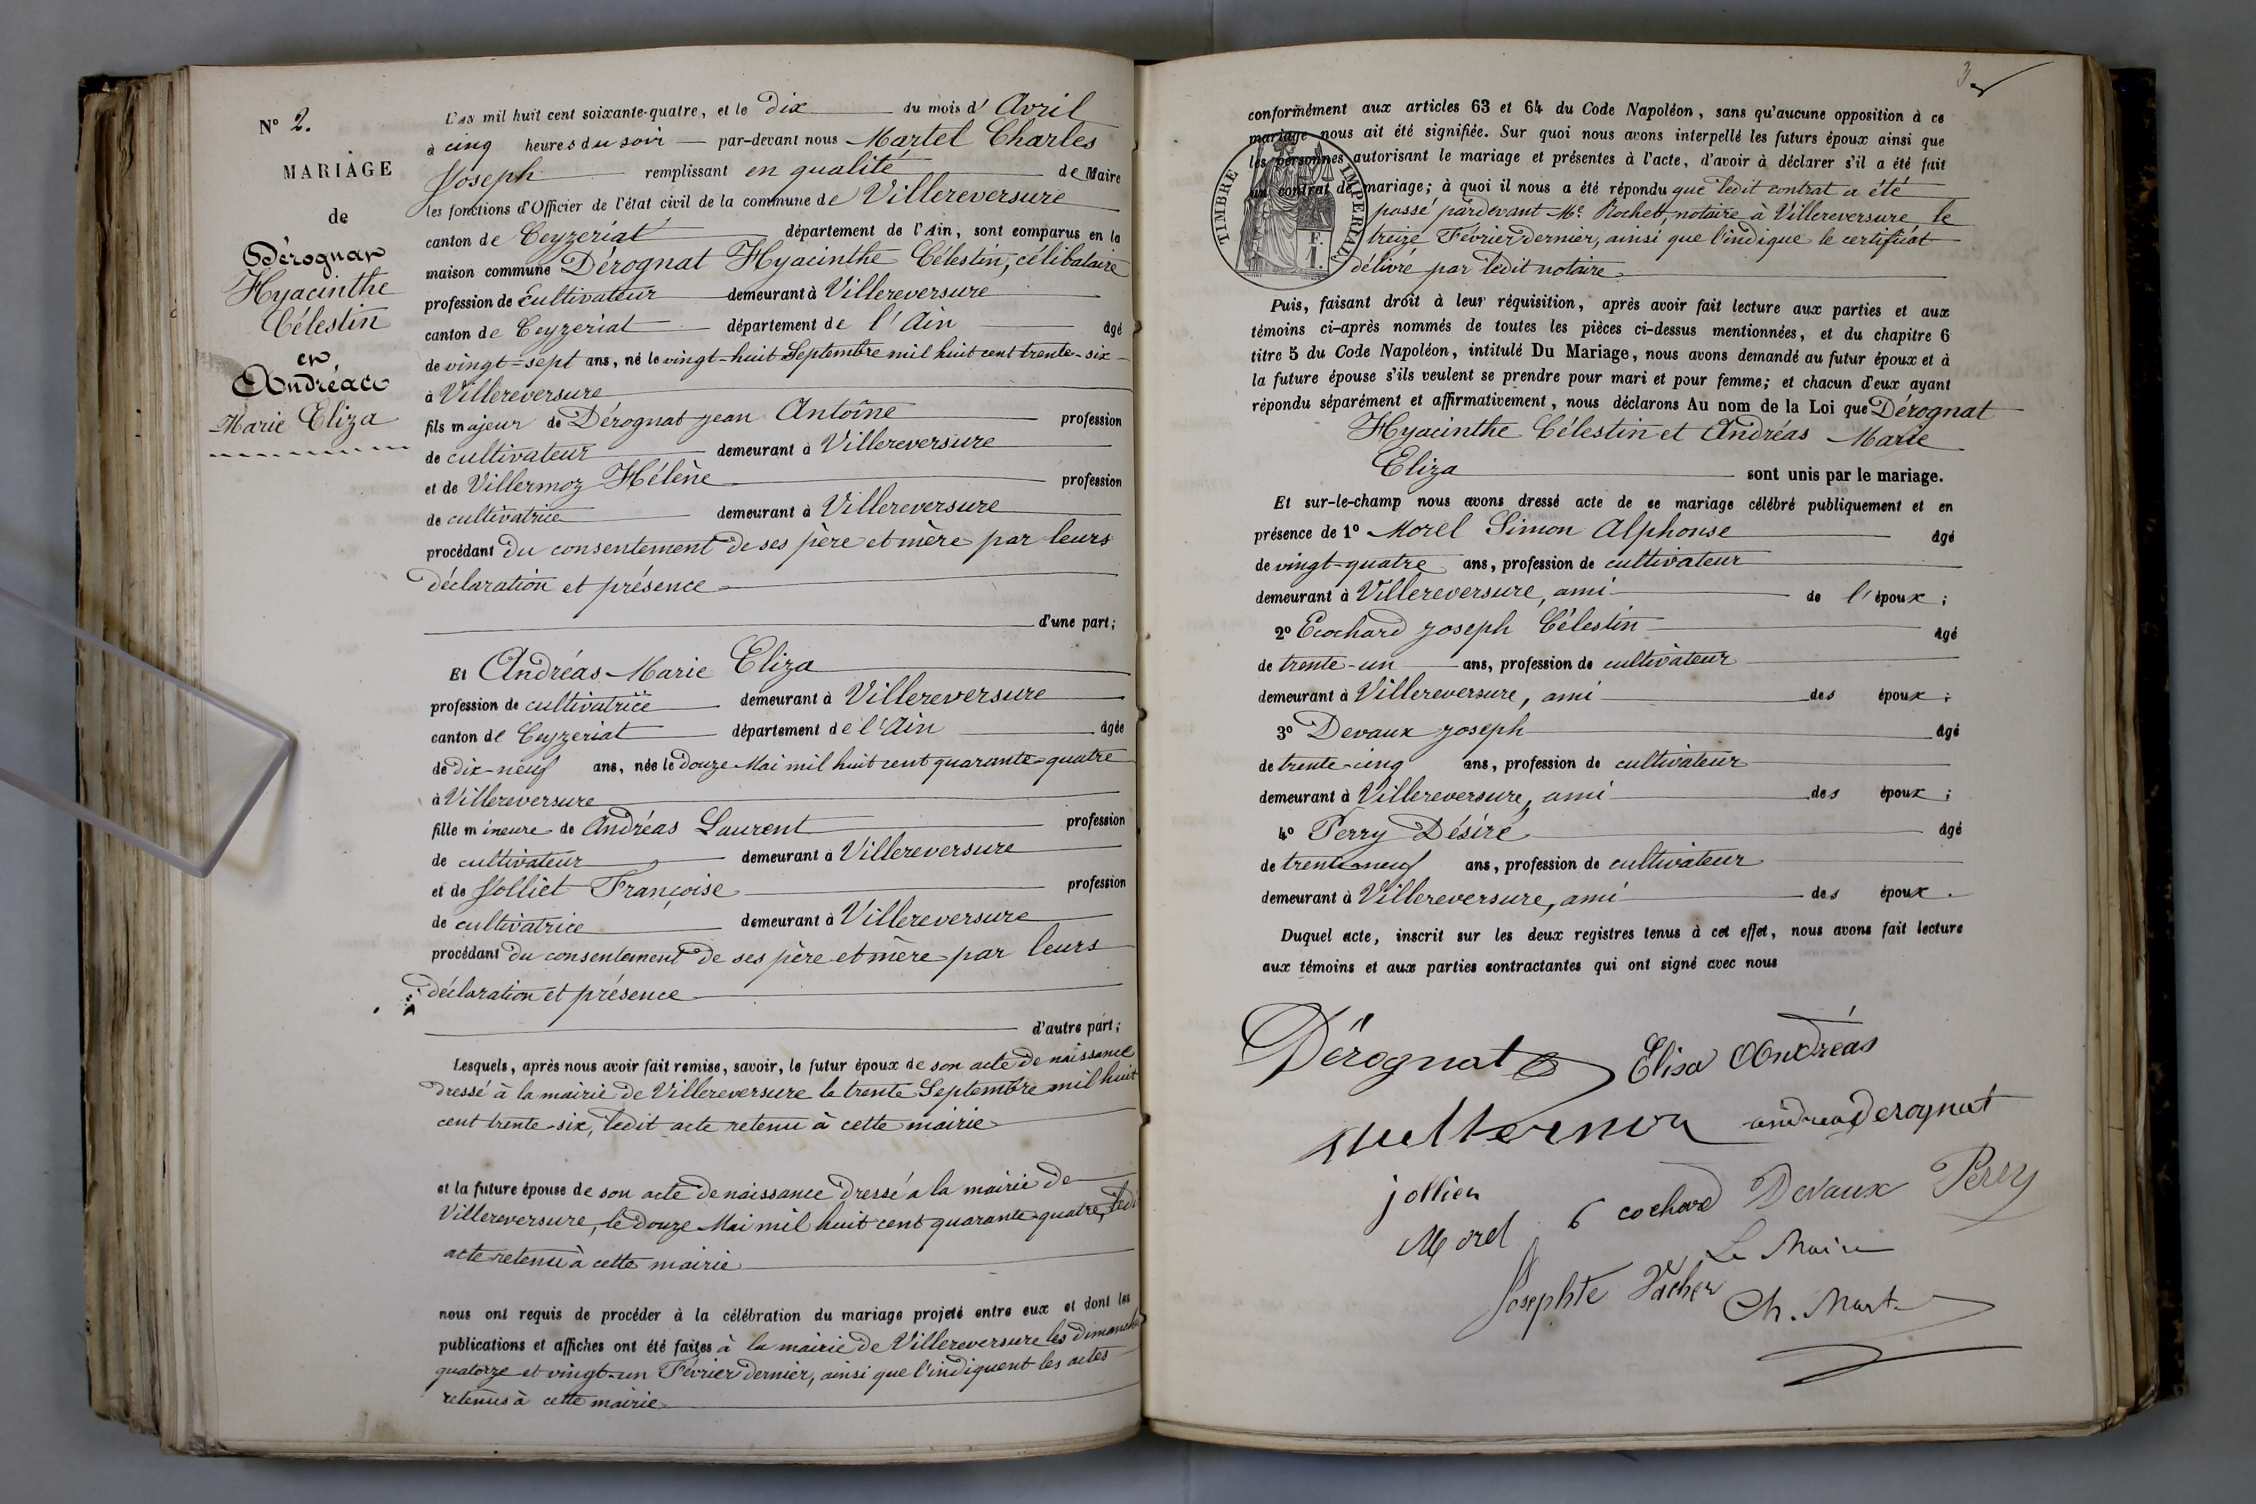 N° 2.
MARIAGE
de
Dérognat
Hyacinthe
Célestin
et
Andréas
Marie Eliza
L'an mil huit cent soixante-quatre, et le dix du mois d'Avril
à cinq heures du soir par-devant nous Martel Charles
Joseph remplissant en qualité de Maire
les fonctions d'Officier de l'état civil de la commune de Villereversure
canton de Ceyzeriat département de l'Ain, sont comparus en la
maison commune Dérognat Hyacinthe Célestin, célibataire
profession de Cultivateur demeurant à Villereversure
canton de Ceyzeriat département de l'Ain âgé
de vingt-sept ans, né le vingt-huit Septembre mil huit cent trente-six
à Villereversure
fils majeur de Dérognat jean Antoine profession
de cultivateur demeurant à Villereversure
et de Villermoz Hélène profession
de cultivatrice demeurant à Villereversure
procédant du consentement de ses père et mère par leurs
déclaration et présence
d'une part;
Et Andréas Marie Eliza
profession de cultivatrice demeurant à Villereversure
canton de Ceyzeriat département de l'Ain âgée
de dix-neuf ans, née le douze Mai mil huit cent quarante-quatre
à Villereversure
fille mineure de Andréas Laurent profession
de cultivateur demeurant à Villereversure
et de Jolliet Françoise profession
de cultivatrice demeurant à Villereversure
procédant du consentement de ses père et mère par leurs
déclaration et présence
d'autre part;
Lesquels, après nous avoir fait remise, savoir, le futur époux de son acte de naissance
dressé à la mairie de Villereversure le trente Septembre mil huit
cent trente-six, ledit acte retenu à cette mairie
et la future épouse de son acte de naissance dressé à la mairie de
Villereversure, le douze Mai mil huit cent quarante-quatre, ledit
acte retenu à cette mairie
nous ont requis de procéder à la célébration du mariage projeté entre eux et dont les
publications et affiches ont été faites à la mairie de Villereversure les dimanches
quatorze et vingt-un Février dernier, ainsi que l'indiquent les actes
retenus à cette mairie
3
conformément aux articles 63 et 64 du Code Napoléon, sans qu'aucune opposition à ce
mariage nous ait été signifiée. Sur quoi nous avons interpellé les futurs époux ainsi que
les personnes autorisant le mariage et présentes à l'acte, d'avoir à déclarer s'il a été fait
un contrat de mariage; à quoi il nous a été répondu que ledit contrat a été
passé pardevant Me. Rochet, notaire à Villereversure le
treize Février dernier, ainsi que l'indique le certificat
délivré par ledit notaire
TIMBRE IMPERIAL
F.
1.
Puis, faisant droit à leur réquisition, après avoir fait lecture aux parties et aux
témoins ci-après nommés de toutes les pièces ci-dessus mentionnées, et du chapitre 6
titre 5 du Code Napoléon, intitulé Du Mariage, nous avons demandé au futur époux et à
la future épouse s'ils veulent se prendre pour mari et pour femme; et chacun d'eux ayant
répondu séparément et affirmativement, nous déclarons Au nom de la Loi que Dérognat
Hyacinthe Célestin et Andréas Marie
Eliza sont unis par le mariage.
Et sur-le-champ nous avons dressé acte de ce mariage célébré publiquement et en
présence de 1° Morel Simon Alphonse âgé
de vingt-quatre ans, profession de cultivateur
demeurant à Villereversure, ami de l'époux;
2° Ecochard joseph Célestin âgé
de trente-un ans, profession de cultivateur
demeurant à Villereversure, ami des époux;
3° Devaux joseph âgé
de trente-cinq ans, profession de cultivateur
demeurant à Villereversure, ami des époux;
4° Perry Désiré âgé
de trente-neuf ans, profession de cultivateur
demeurant à Villereversure, ami des époux.
Duquel acte, inscrit sur les deux registres tenus à cet effet, nous avons fait lecture
aux témoins et aux parties contractantes qui ont signé avec nous
Dérognat Elisa Andréas
andreas derognat
jollien
Morel Ecochard Devaux Perry
Le Maire
Josephte Vacher Ch. Martel